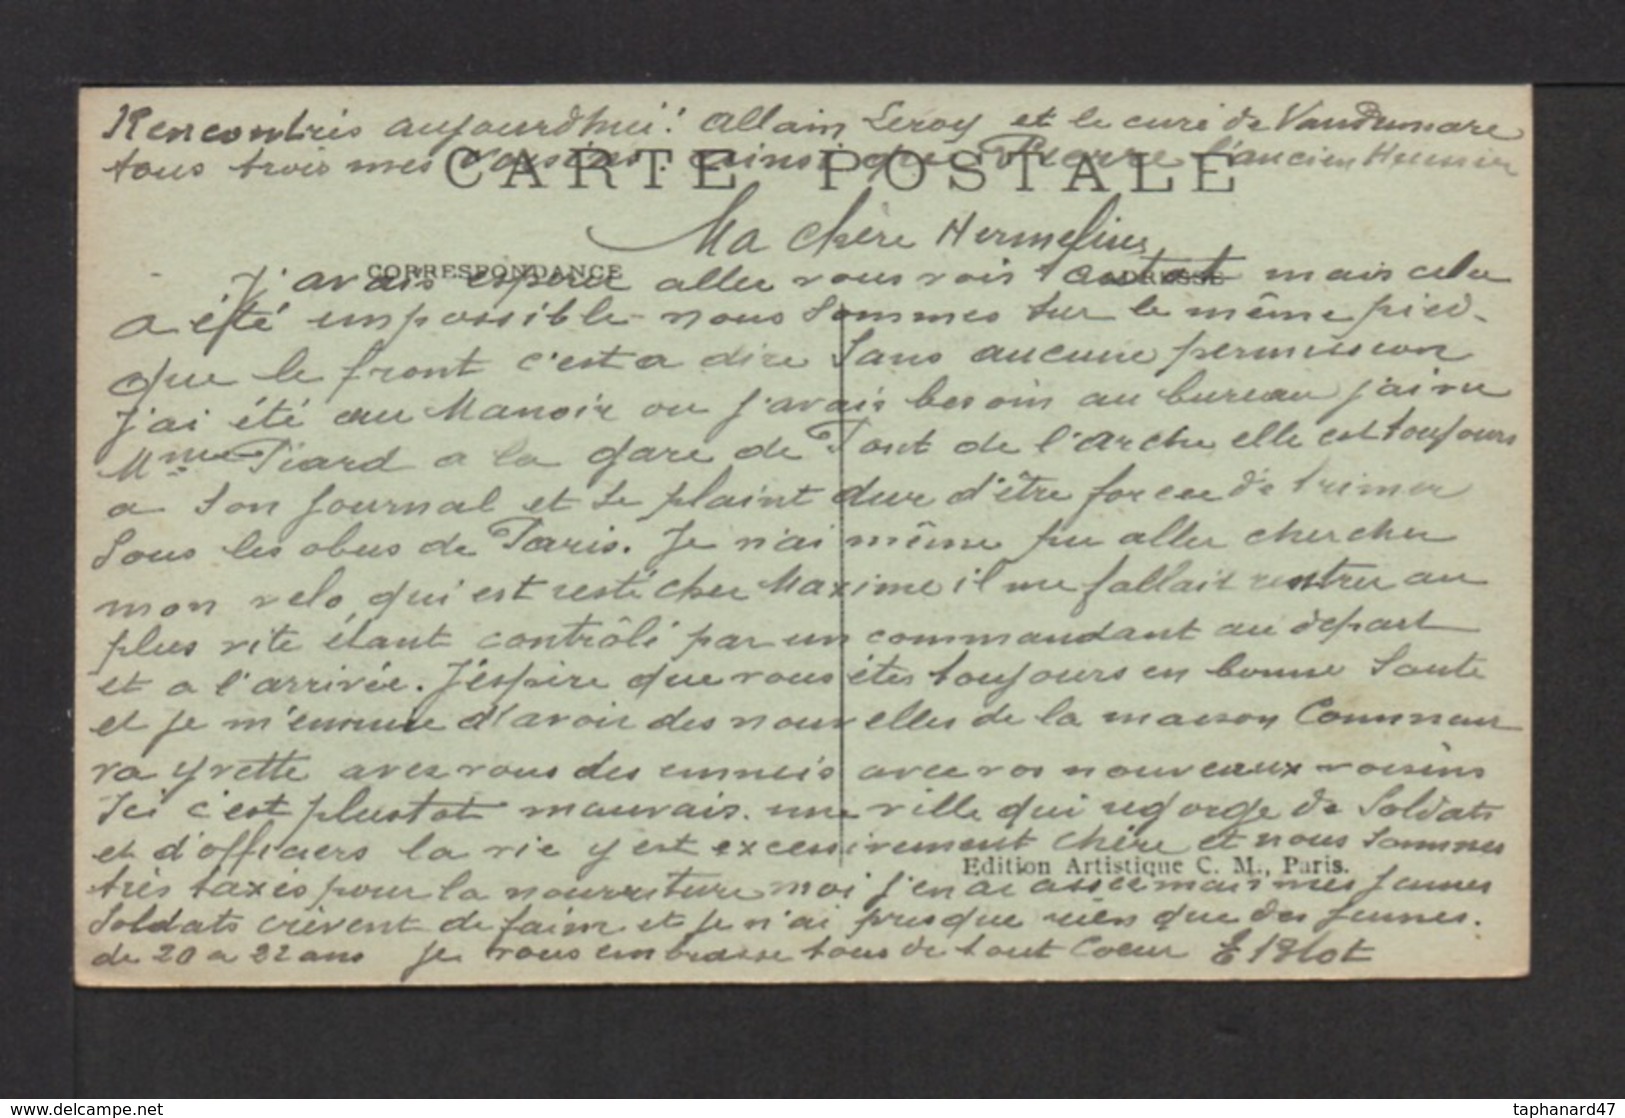 Rencontrés aujourd'hui! Allain Leroy et le curé de Vandrimare
tous trois mes voisins. ainsi que Pierre l'ancien Huissier
CARTE POSTALE
Ma chère Hermeline
CORRESPONDANCE
ADRESSE
J'avais espérer aller vous voir mais cela
a été impossible nous sommes sur le même pied.
que le front c'est a dire sans aucune permission
J'ai été au Manoir ou j'avais besoin au bureau j'ai vu
Mme Piard a la gare de Pont de l'arche elle est toujours
a son journal et se plaint dur d'être forcée de trimer
sous les obus de Paris. Je n'ai même pu aller chercher
mon velo qui est resté chez Maxime il me fallait rentrer au
plus vite étant contrôlé par un commandant au départ
et a l'arrivée. J'éspère que vous êtes toujours en bonne Santé
et je m'ennuie d'avoir des nouvelles de la maison Comment
va Yvette avez vous des ennuis avec vos nouveaux voisins
Ici c'est plustot mauvais. une ville qui regorge de Soldats
et d'officiers la vie y est excessivement chère et nous sommes
Edition Artistique C. M., Paris.
très taxés pour la nourriture moi j'en ai assez mais mes jeunes
Soldats crèvent de faim et je n'ai presque rien que des jeunes.
de 20 a 22 ans je vous embrasse tous de tout Coeur
www.delcampe.net
taphanard47